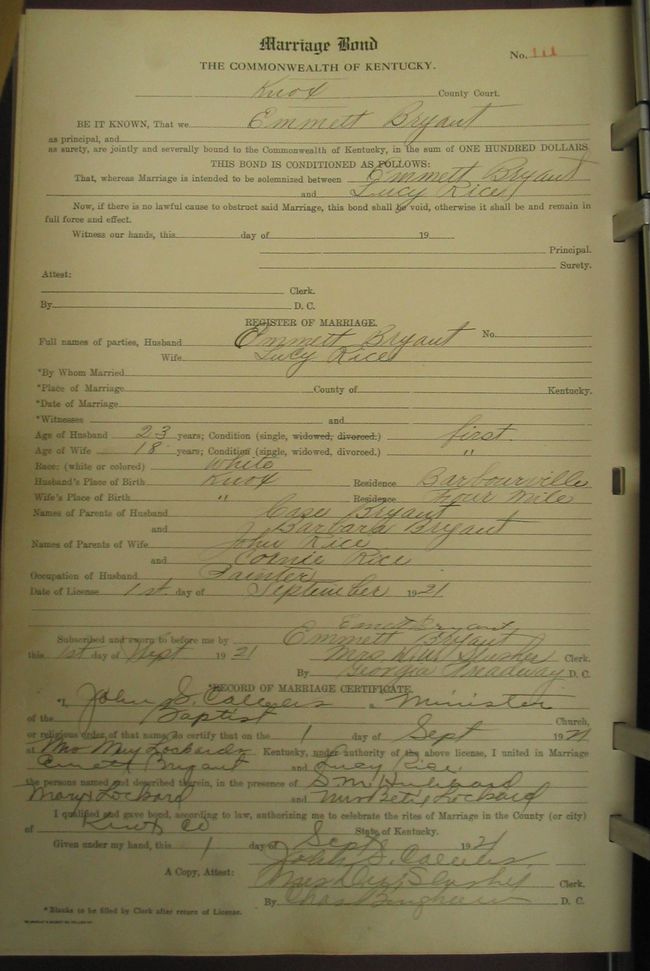 Marriage Bond
No. 111
THE COMMONWEALTH OF KENTUCKY.
Knox County Court.
BE IT KNOWN, That we Emmett Bryant
as principal, and
as surety, are jointly and severally bound to the Commonwealth of Kentucky, in the sum of ONE HUNDRED DOLLARS
THIS BOND IS CONDITIONED AS FOLLOWS:
That, whereas Marriage is intended to be solemnized between Emmett Bryant
and Lucy Rice
Now, if there is no lawful cause to obstruct said Marriage, this bond shall be void, otherwise it shall be and remain in
full force and effect.
Witness our hands, this day of 19
Principal.
Surety.
Attest:
Clerk.
By D. C.
REGISTER OF MARRIAGE.
Full names of parties, Husband Emmett Bryant No.
Wife Lucy Rice
*By Whom Married
*Place of Marriage County of Kentucky.
*Date of Marriage
*Witnesses and
Age of Husband 23 years; Condition (single, widowed, divorced.) first
Age of Wife 18 years; Condition (single, widowed, divorced.) "
Race: (white or colored) White
Husband's Place of Birth Knox Residence Barbourville
Wife's Place of Birth " Residence Four Mile
Names of Parents of Husband Case Bryant
and Barbara Bryant
Names of Parents of Wife John Rice
and Rice
Occupation of Husband Painter
Date of License 1st day of September 1921
Bryant
Subscribed and sworn to before me by Emmett Bryant
this 1st day of Sept 1921 Mrs Slusher Clerk.
By Georgia Treadway D. C.
*RECORD OF MARRIAGE CERTIFICATE.
I, John S. a Minister
of the Baptist Church,
or religious order of that name, do certify that on the 1 day of Sept 1921
at Mrs May Lockards Kentucky, under authority of the above license, I united in Marriage
Emmett Bryant and Lucy Rice
the persons named and described therein, in the presence of S M Hubbard
Mary Lockard and Mrs Lockard
I qualified and gave bond, according to law, authorizing me to celebrate the rites of Marriage in the County (or city)
of Knox Co State of Kentucky.
Given under my hand, this 1 day of Sept 1921
John S.
A Copy, Attest: Mrs Slusher Clerk.
By Chas D. C.
* Blanks to be filled by Clerk after return of License.